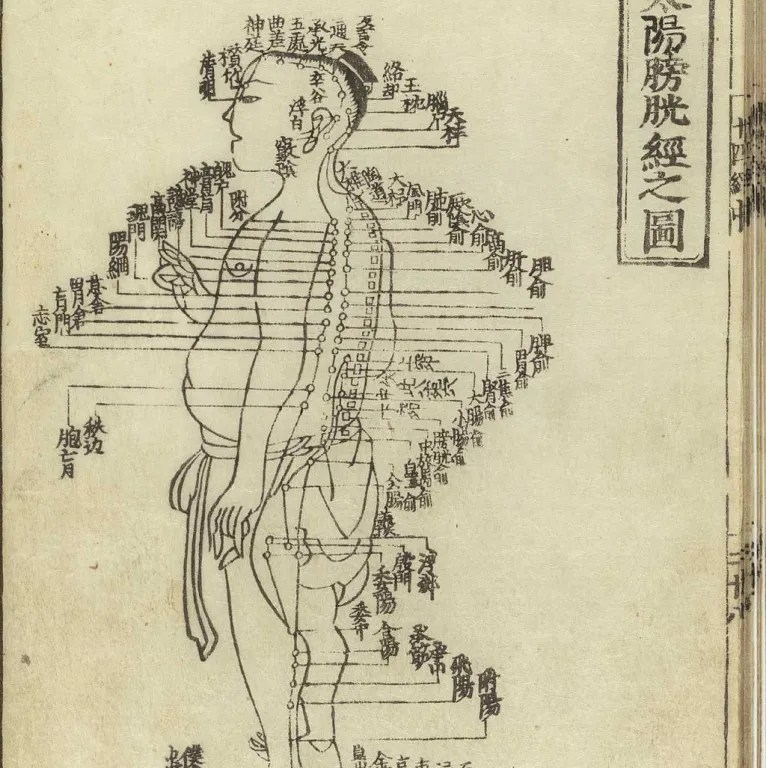 太陽膀胱經之圖
神庭
曲差
五處
承光
通天
絡却
玉枕
腦戶
天柱
攅竹
睛明
率谷
浮白
竅陰
大椎
陶道
大杼
風門
肺俞
厥陰俞
心俞
膈俞
肝俞
胆俞
脾俞
胃俞
三焦俞
腎俞
大腸俞
小腸俞
膀胱俞
中膂俞
白環俞
附分
魄戶
膏肓
神堂
譩譆
膈關
魂門
陽綱
意舍
胃倉
肓門
志室
胞肓
秩边
会陽
承扶
浮郄
殷門
委陽
委中
合陽
承筋
承山
飛陽
跗陽
僕
金
京
十四經中
二十八